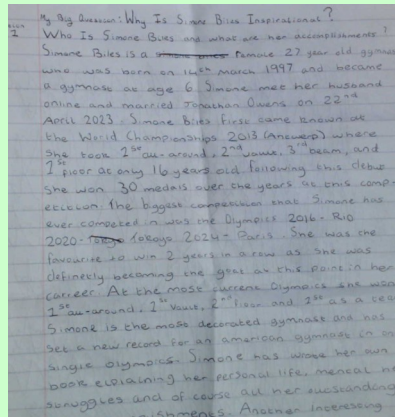 My Big Question: Why Is Simone Biles Inspirational?
Who Is Simone Biles and what are her accomplishments?
Simone Biles is a famous 27 year old gymnast
who was born on 14th March 1997 and became
a gymnast at age 6. Simone met her husband
online and married Jonathan Owens on 22nd
April 2023. Simone Biles first came known at
the World Championships 2013 (Antwerp) where
she took 1st au-around, 2nd vault, 3rd beam, and
1st floor at only 16 years old following this debut
she won 30 medals over the years at this comp-
etition. The biggest competition that Simone has
ever competed in was the Olympics 2016 - Rio
2020 - Tokayo 2024 - Paris. She was the
favourite to win 2 years in a row as she was
definetly becoming the goat at this point in her
carreer. At the most current Olympics she won
1st au-around, 1st vault, 2nd floor and 1st as a tea
Simone is the most decorated gymnast and has
set a new record for an american gymnast in
single olympics. Simone has wrote her own
book explaining her personal life, mental
struggles and of course all her outstanding
Another interesting